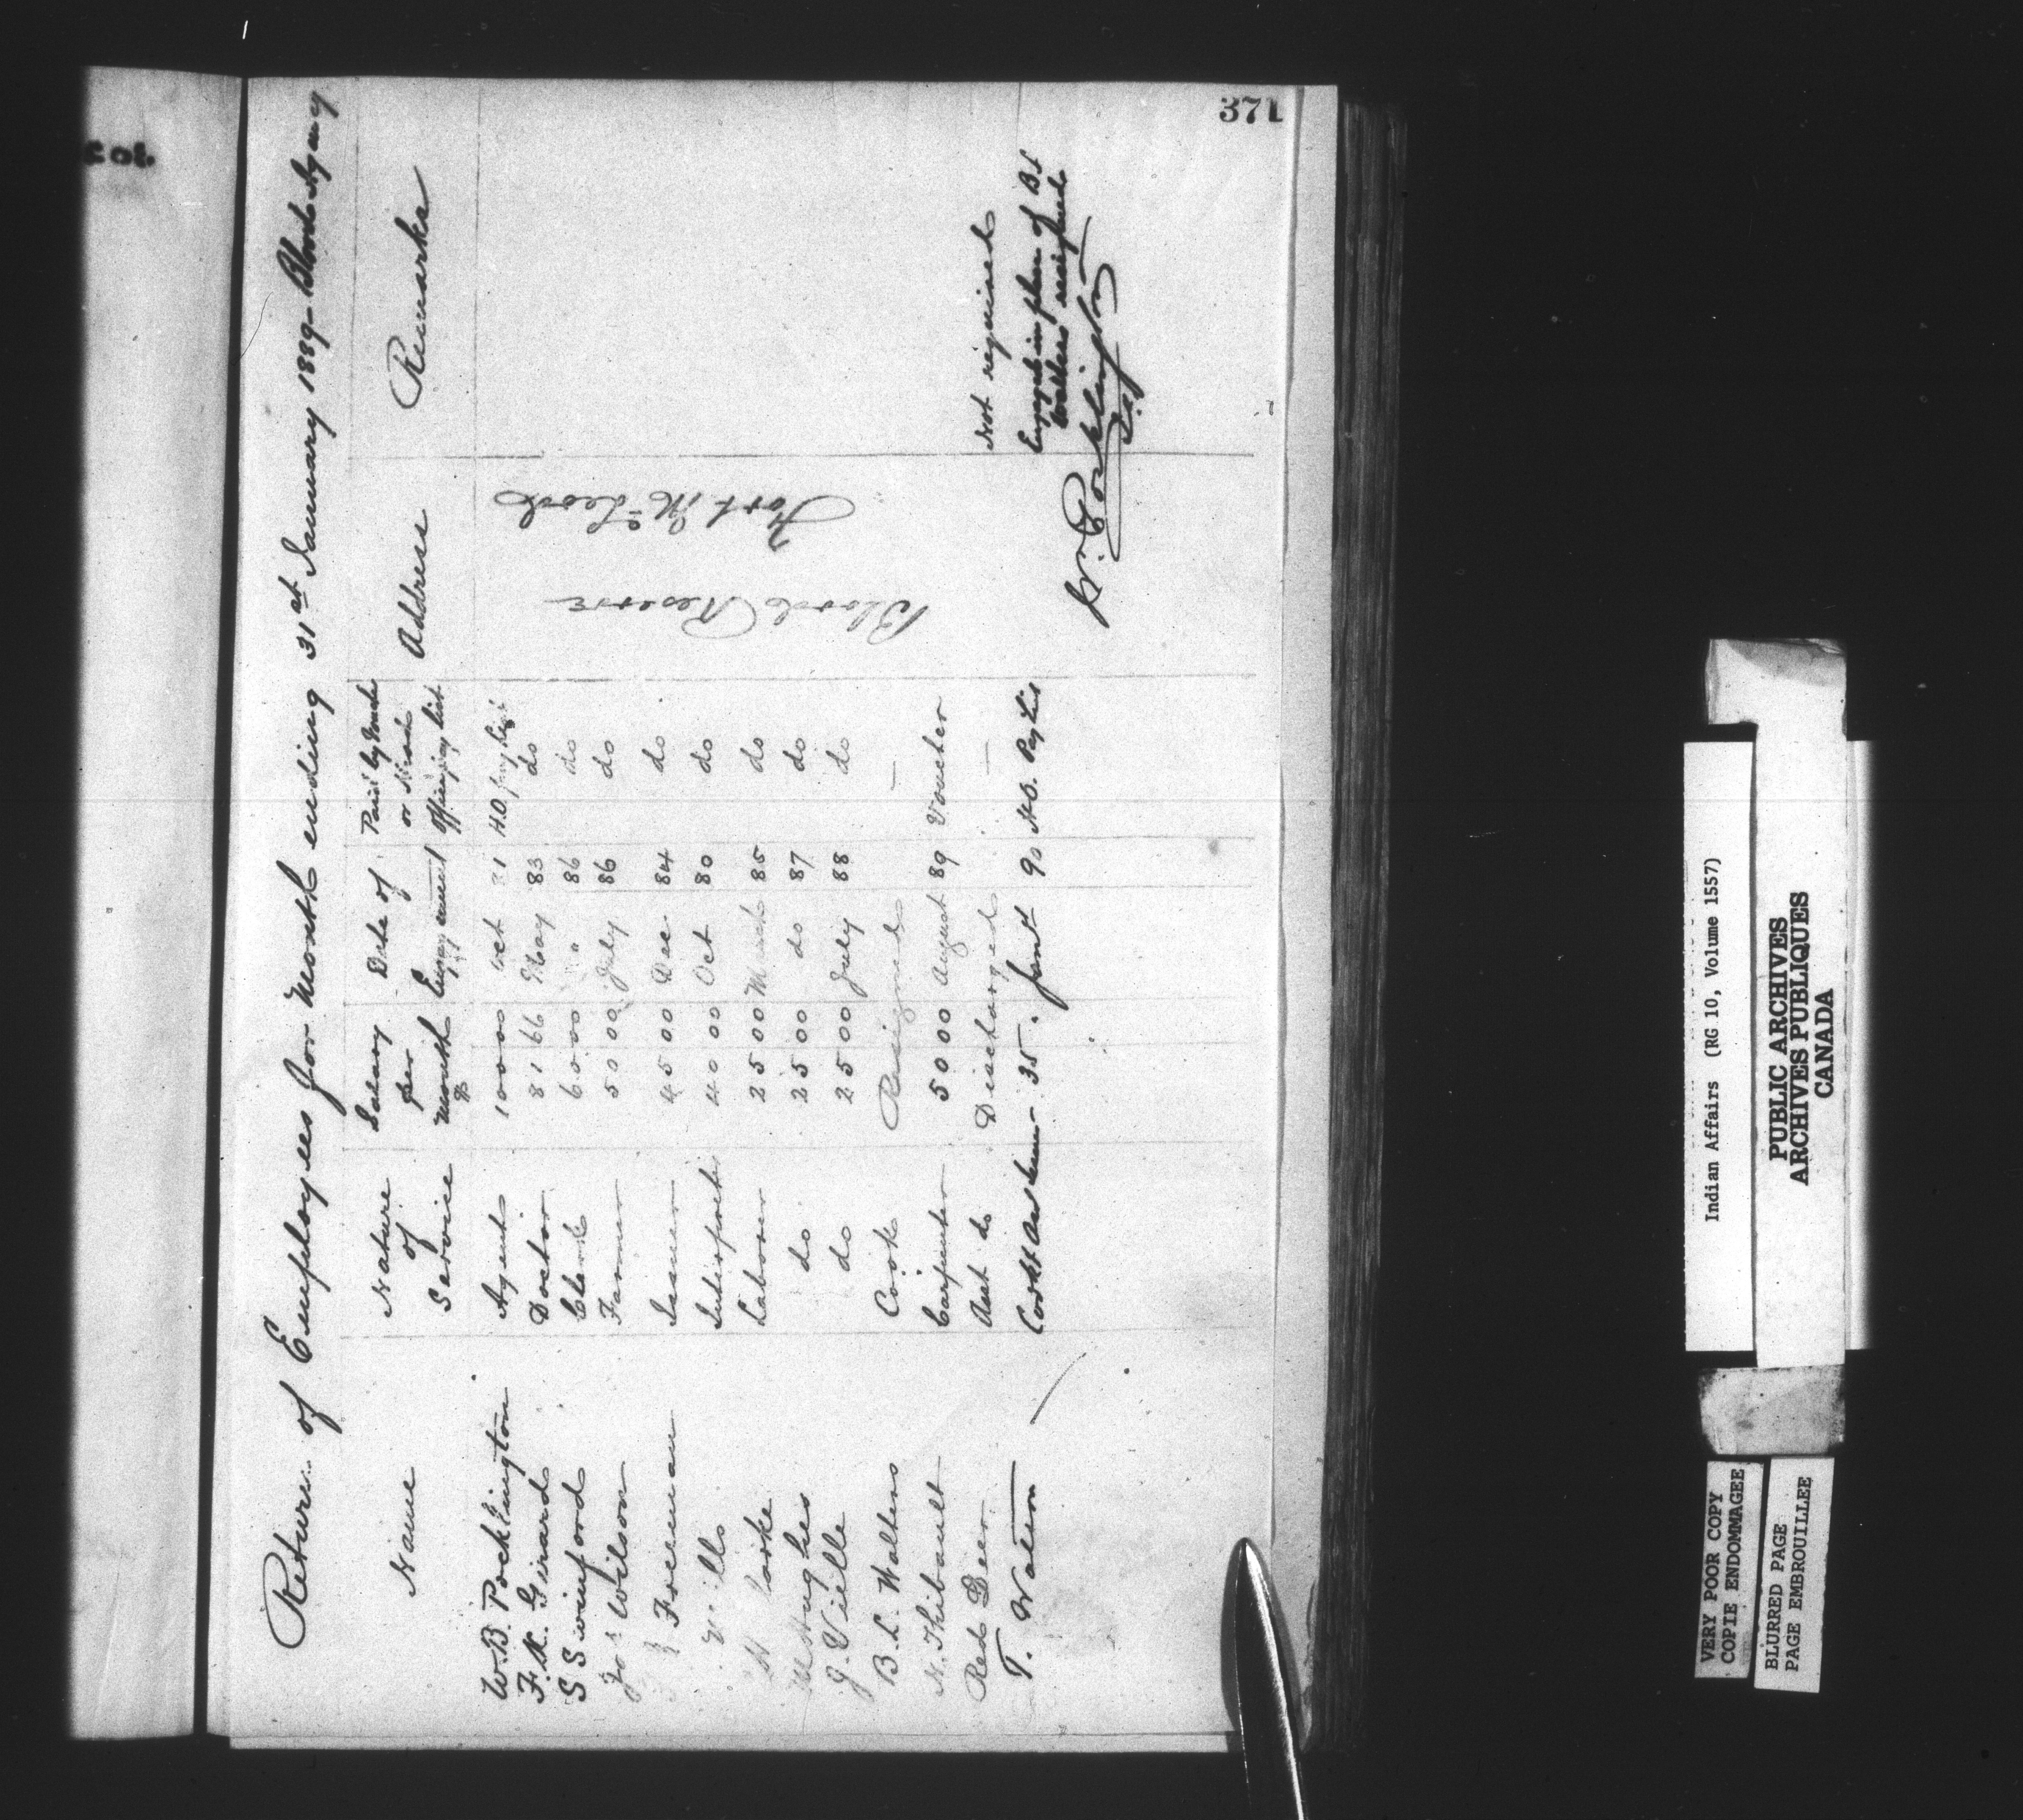 371
Return of Employees for Month ending 31st January 1889 - Blood Agency
Name
Nature of Service
Salary per Month $
Date of Engagement
Paid by Vouch or Head Office pay list
Address
Remarks
W.B. Pocklington Agent 100 00 Oct 81 H.O. pay list
F.X. Girard Doctor 81 66 May 83 do
S Swinford Clerk 60 00 " 86 do
Jos Wilson Farmer 50 00 July 86 do
Freeman Issuer 45 00 Dec 84 do
Mills Interpreter 40 00 Oct 80 do
Laborer 25 00 March 85 do
McHughes do 25 00 do 87 do
J. Vielle do 25 00 July 88 do
B.L. Walters Cook Resigned —
N. Thibault Carpenter 50 00 August 89 Voucher
Red Deer Asst do Discharged — Not required
T. Watson 35. Jany 90 H.O. Pay Lis Engaged in place of B L Walters resigned
Blood Reserve
Fort McLeod
W. Pocklington
Indian Affairs (RG 10, Volume 1557)
PUBLIC ARCHIVES
ARCHIVES PUBLIQUES
CANADA
VERY POOR COPY
COPIE ENDOMMAGEE
BLURRED PAGE
PAGE EMBROUILLEE